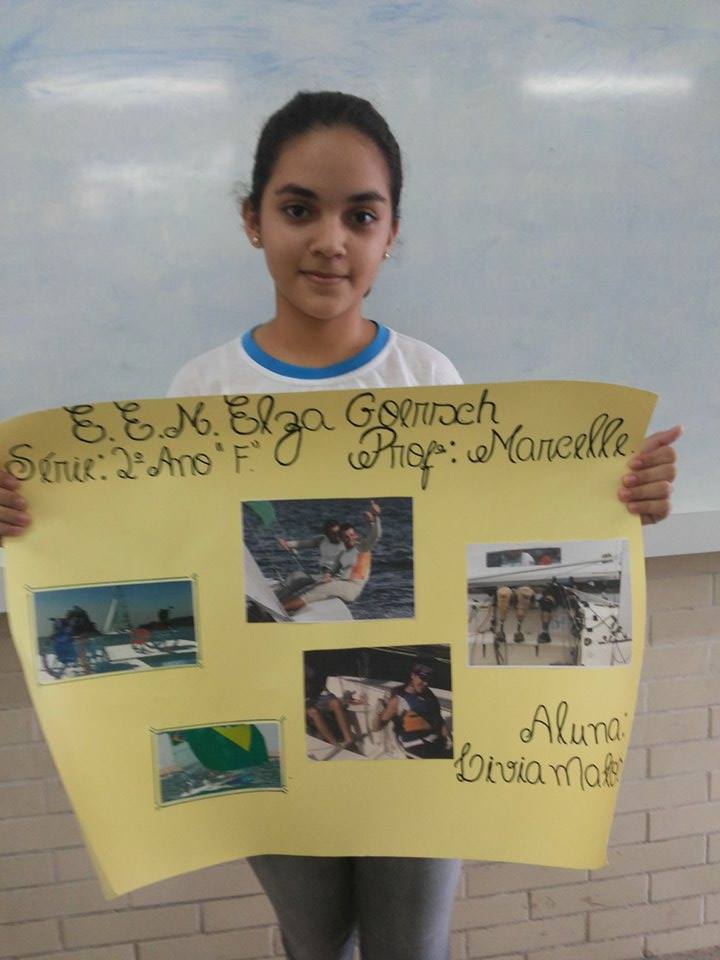 E.E.M. Elza Goersch
Série: 2º Ano "F." Profª: Marcelle.
Aluna:
Livia